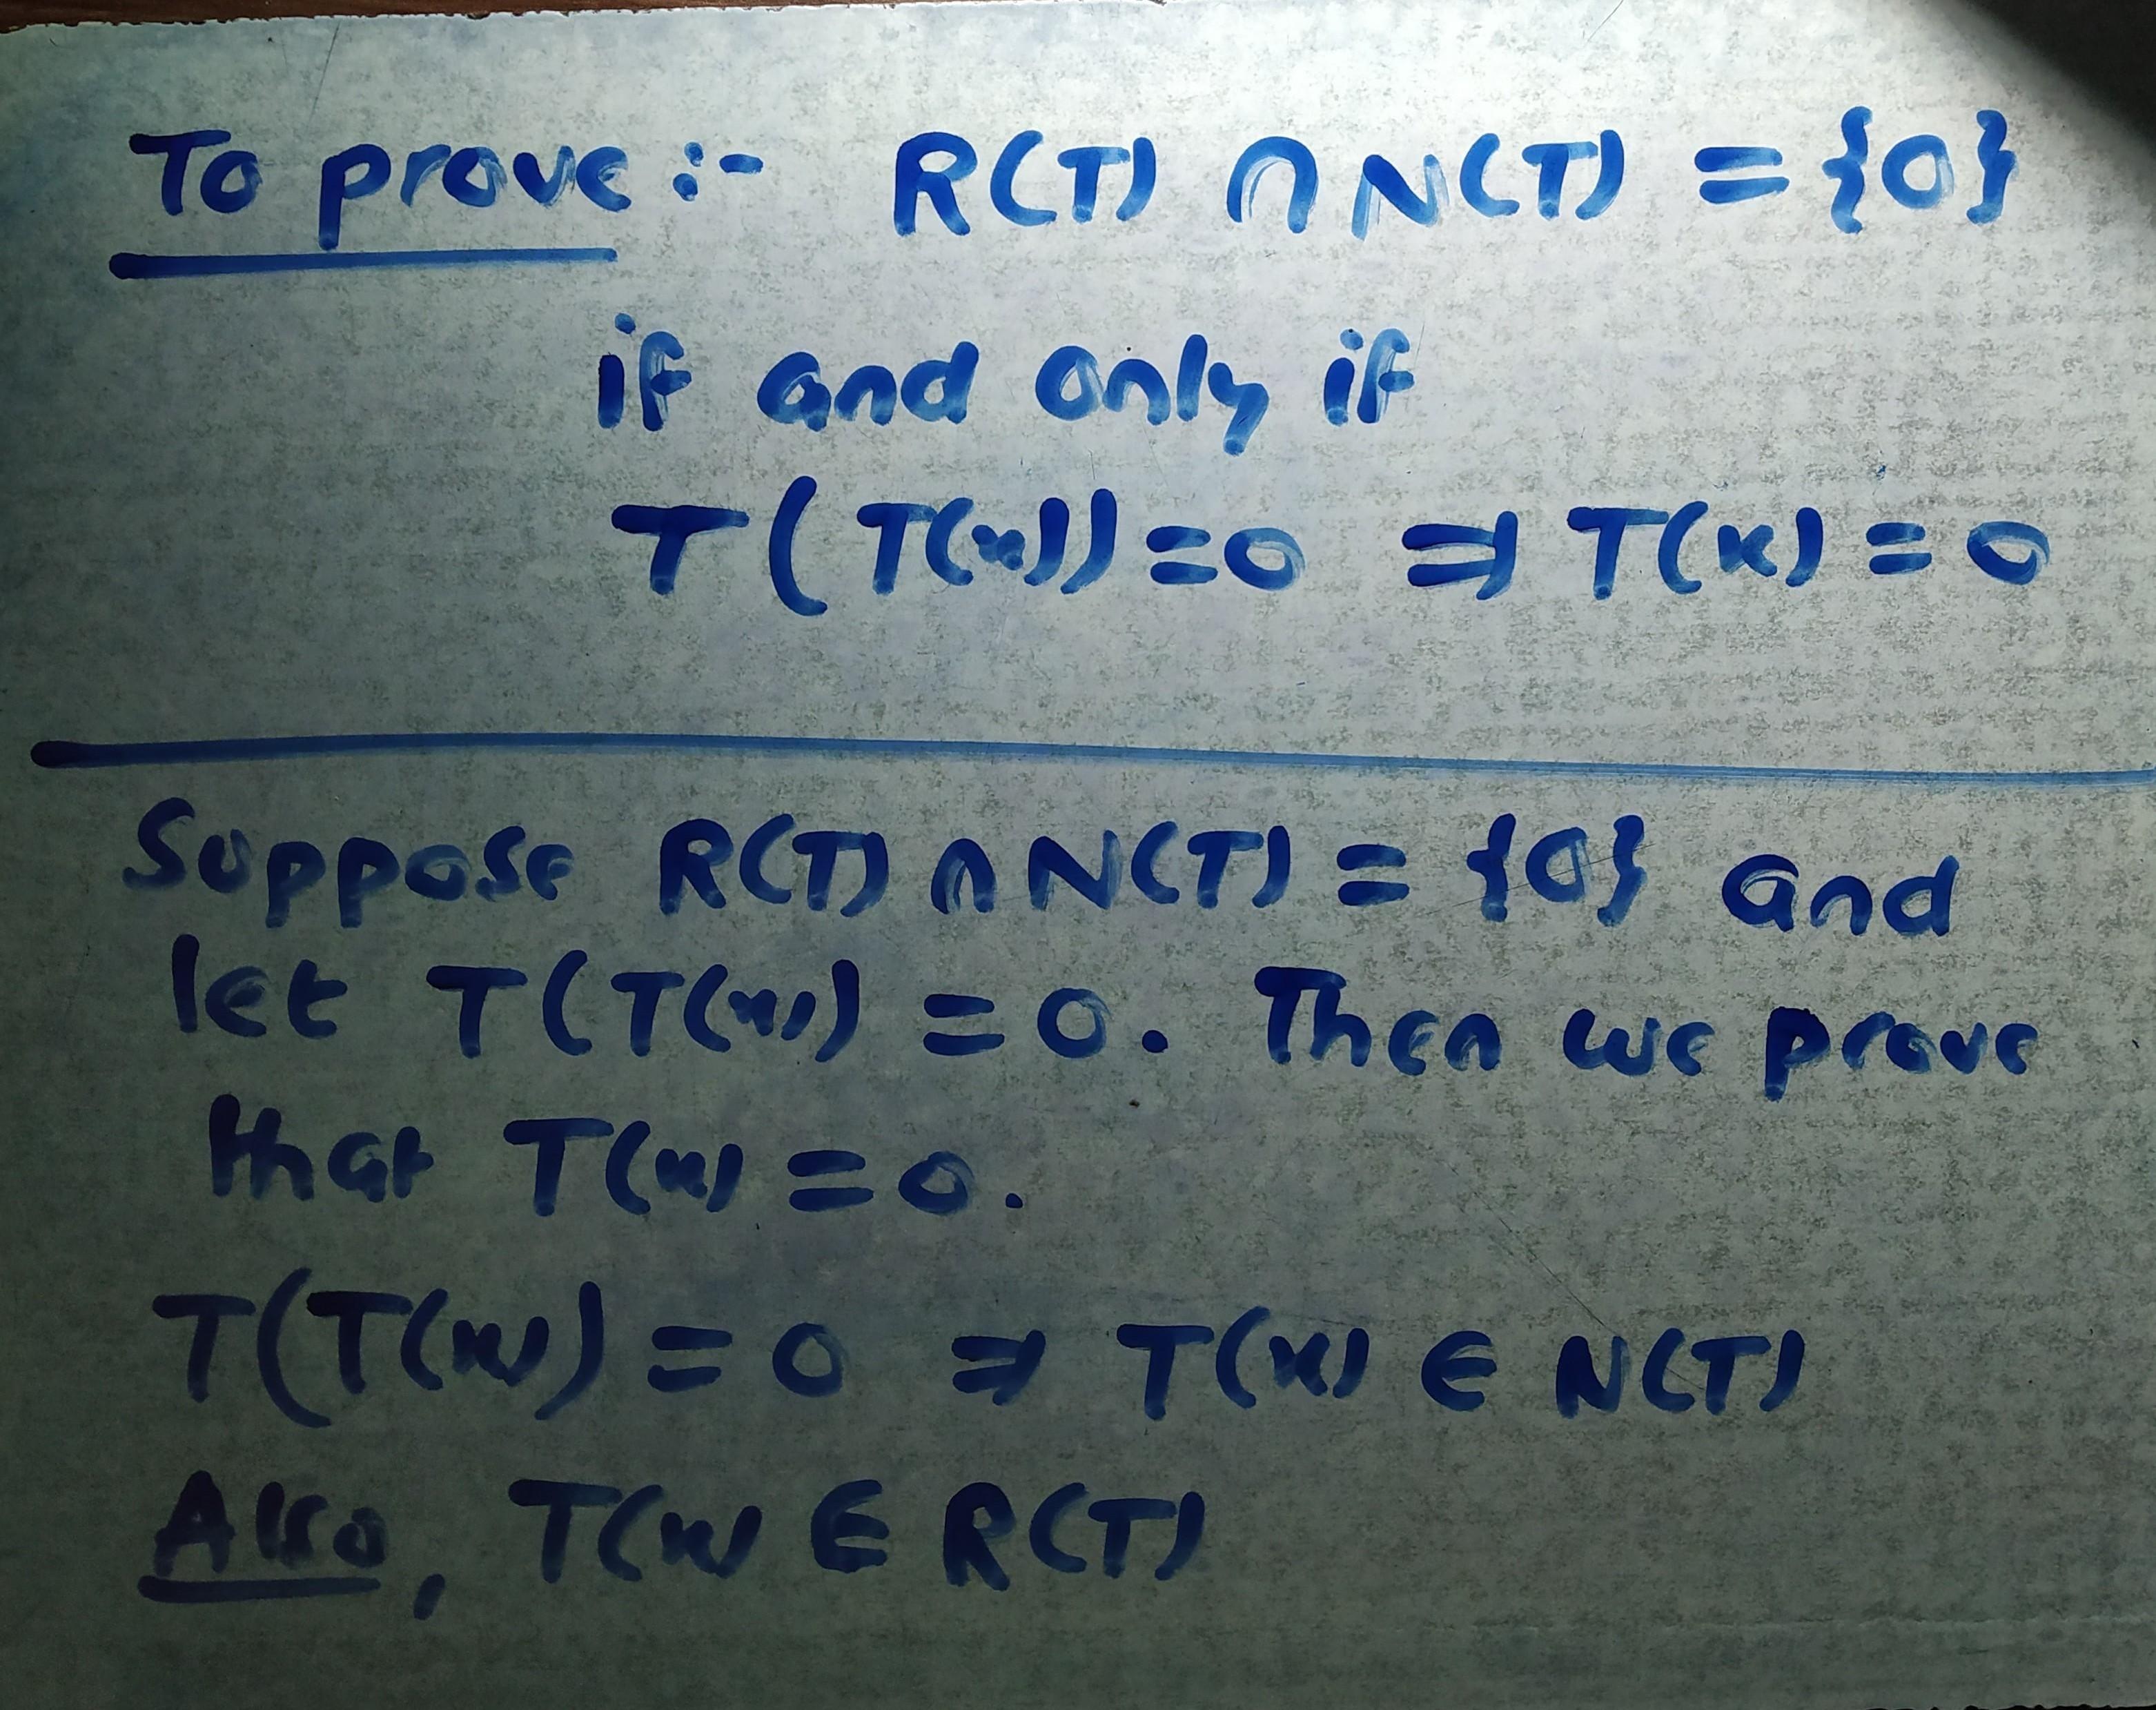 To prove :- R(T) ∩ N(T) = {0}
if and only if
T(T(x)) = 0 ⇒ T(x) = 0
Suppose R(T) ∩ N(T) = {0} and
let T(T(x)) = 0. Then we prove
that T(x) = 0.
T(T(x)) = 0 ⇒ T(x) ∈ N(T)
Also, T(x) ∈ R(T)